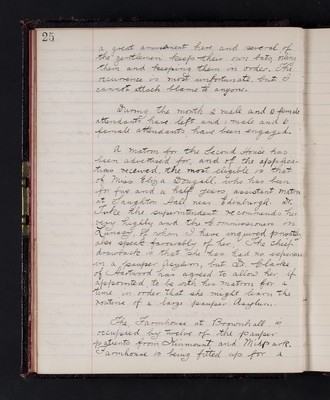 25
a great amusement here, and several of
the gentlemen keep their own bats, oiling
them and keeping them in order. The
occurrence is most unfortunate, but I
cannot attach blame to anyone.
During the month 2 male and 2 female
attendants have left and 1 male and 2
female attendants have been engaged.
A matron for the Second House has
been advertised for, and of the applica-
tions received, the most eligible is that
of Miss Eliza Dougall, who has been
for five and a half years, assistant matron
at Saughton Hall near Edinburgh. Dr.
Tuke the superintendent recommends her
very highly and the Commissioners in
Lunacy, of whom I have enquired privately
also speak favorably of her. The chief
drawback is that she has had no experience
in a pauper asylum, but Dr. Clarke
of Hartwood has agreed to allow her if
appointed to be with his matron for a
time in order that she might learn the
routine of a large pauper Asylum.
The Farmhouse at Brownhall is
occupied by twelve of the pauper
patients from Kinmount and Midpark
Farmhouse is being fitted up for a